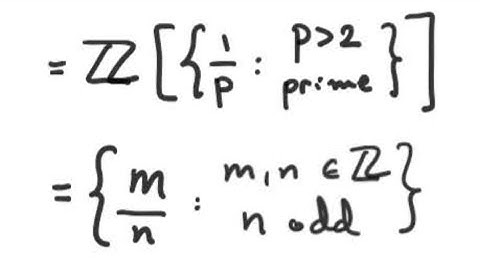 = ℤ [ { 1/p : p>2 prime } ]
= { m/n : m, n ∈ ℤ n odd }